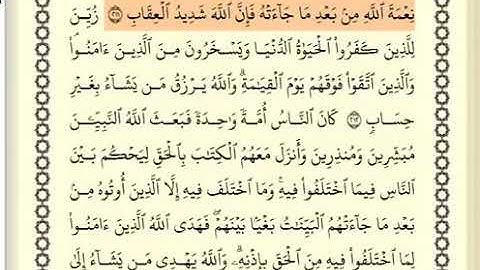 نِعْمَةَ اللَّهِ مِنْ بَعْدِ مَا جَاءَتْهُ فَإِنَّ اللَّهَ شَدِيدُ الْعِقَابِ ﴿٢١١﴾ زُيِّنَ
لِلَّذِينَ كَفَرُوا الْحَيَوٰةُ الدُّنْيَا وَيَسْخَرُونَ مِنَ الَّذِينَ ءَامَنُوا
وَالَّذِينَ اتَّقَوْا فَوْقَهُمْ يَوْمَ الْقِيَٰمَةِ ۗ وَاللَّهُ يَرْزُقُ مَنْ يَشَاءُ بِغَيْرِ
حِسَابٍ ﴿٢١٢﴾ كَانَ النَّاسُ أُمَّةً وَٰحِدَةً فَبَعَثَ اللَّهُ النَّبِيِّـۧنَ
مُبَشِّرِينَ وَمُنْذِرِينَ وَأَنْزَلَ مَعَهُمُ الْكِتَٰبَ بِالْحَقِّ لِيَحْكُمَ بَيْنَ
النَّاسِ فِيمَا اخْتَلَفُوا فِيهِ ۚ وَمَا اخْتَلَفَ فِيهِ إِلَّا الَّذِينَ أُوتُوهُ مِنْ
بَعْدِ مَا جَاءَتْهُمُ الْبَيِّنَٰتُ بَغْيًا بَيْنَهُمْ ۖ فَهَدَى اللَّهُ الَّذِينَ ءَامَنُوا
لِمَا اخْتَلَفُوا فِيهِ مِنَ الْحَقِّ بِإِذْنِهِ ۗ وَاللَّهُ يَهْدِي مَنْ يَشَاءُ إِلَىٰ